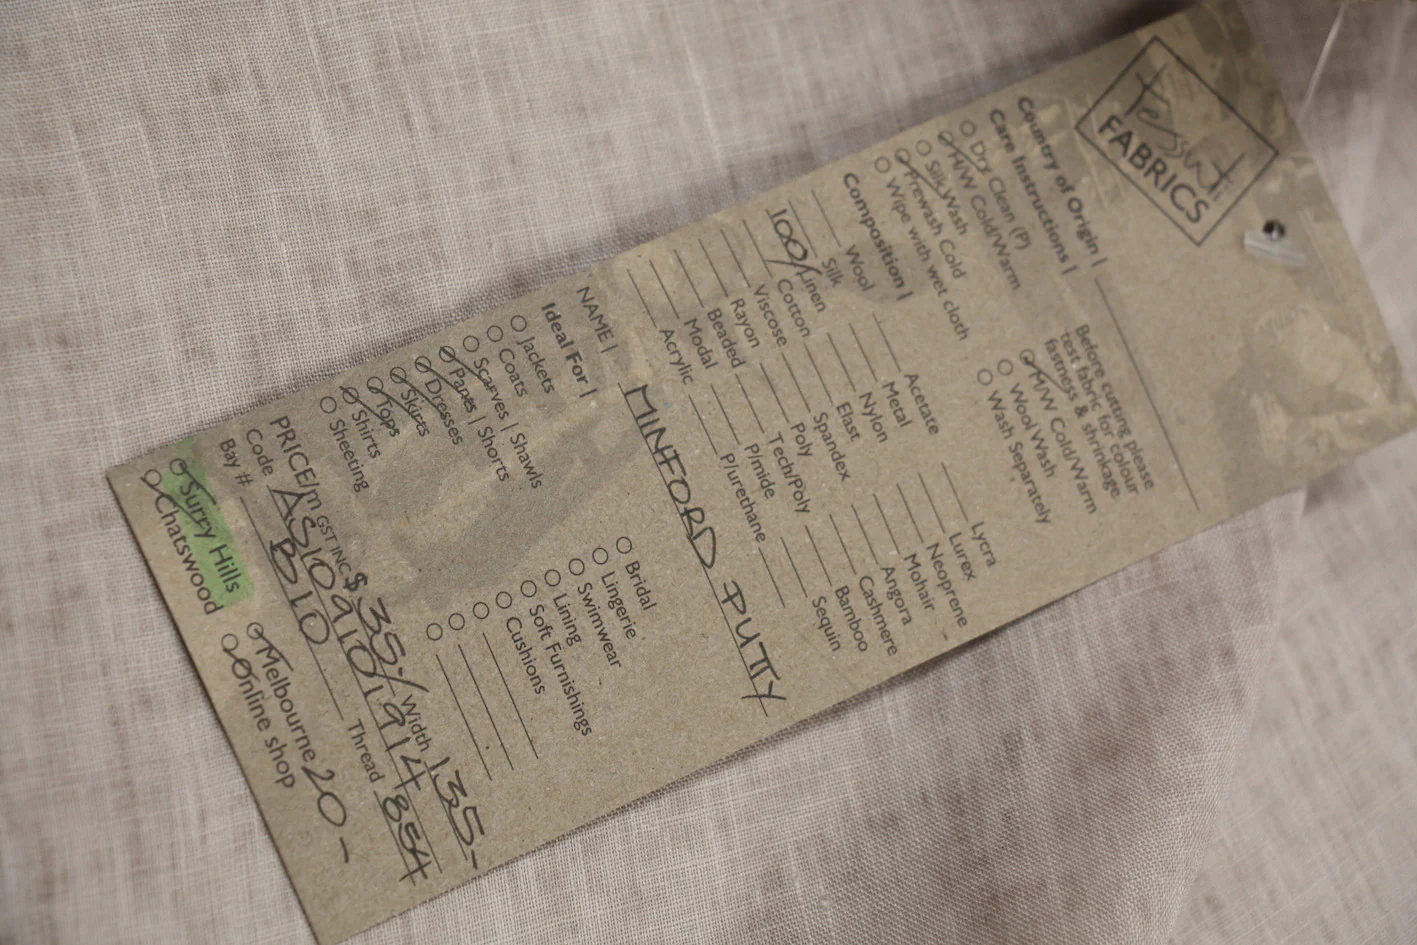 tessuti
FABRICS
Country of Origin |
Care Instructions |
Dry Clean (P)
H/W Cold/Warm
Silk Wash
Prewash Cold
Wipe with wet cloth
Before cutting please
test fabric for colour
fastness & shrinkage
H/W Cold/Warm
Wool Wash
Wash Separately
Composition |
Wool
Silk
100/Linen
Cotton
Viscose
Rayon
Beaded
Modal
Acrylic
Acetate
Metal
Nylon
Elast
Spandex
Poly
Tech/Poly
P/mide
P/urethane
Lycra
Lurex
Neoprene
Mohair
Angora
Cashmere
Bamboo
Sequin
NAME | MINFORD PUTTY
Ideal For |
Jackets
Coats
Scarves | Shawls
Pants | Shorts
Dresses
Skirts
Tops
Shirts
Sheeting
Bridal
Lingerie
Swimwear
Lining
Soft Furnishings
Cushions
PRICE/m GST INC $ 35-/ Width 135-
Code AS109101914
Bay # B10 Thread 854
Surry Hills
Chatswood
Melbourne 20-
Online shop